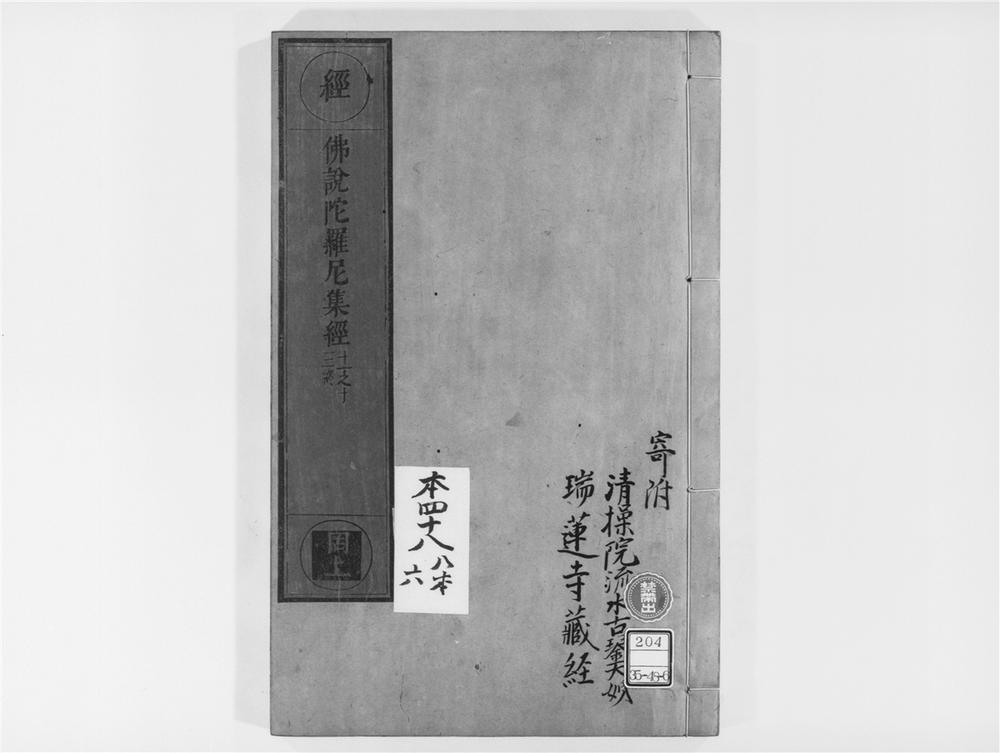 經
佛說陀羅尼集經
十一之十
三終
罔上
本四十八
八本
六
寄附
清操院流水古鑒大姉
瑞蓮寺藏経
禁帶出
204
35-48-6